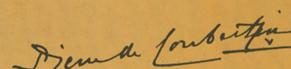 Pierre de Coubertin